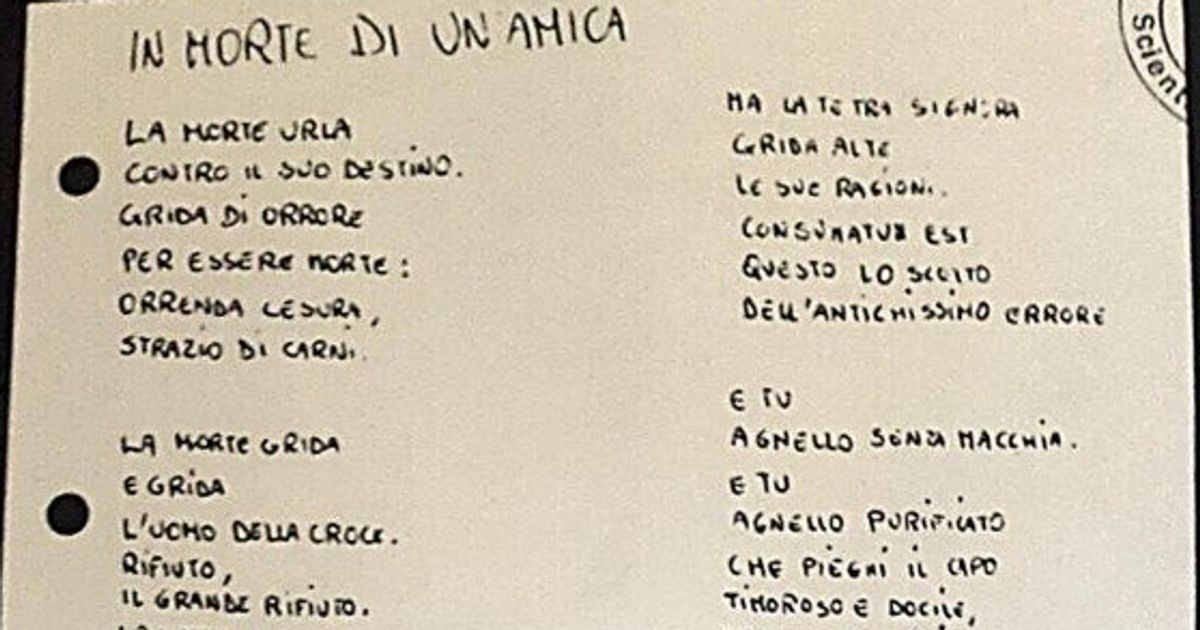 IN MORTE DI UN'AMICA
LA MORTE URLA
CONTRO IL SUO DESTINO.
GRIDA DI ORRORE
PER ESSERE MORTE:
ORRENDA CESURA,
STRAZIO DI CARNI.
LA MORTE GRIDA
E GRIDA
L'UOMO DELLA CROCE.
RIFIUTO,
IL GRANDE RIFIUTO.
MA LA TETRA SIGNORA
GRIDA ALTE
LE SUE RAGIONI.
CONSUMATUM EST
QUESTO LO
DELL'ANTICHISSIMO ERRORE
E TU
AGNELLO SENZA MACCHIA.
E TU
AGNELLO PURIFICATO
CHE PIEGHI IL CAPO
TIMOROSO E DOCILE,
Scient